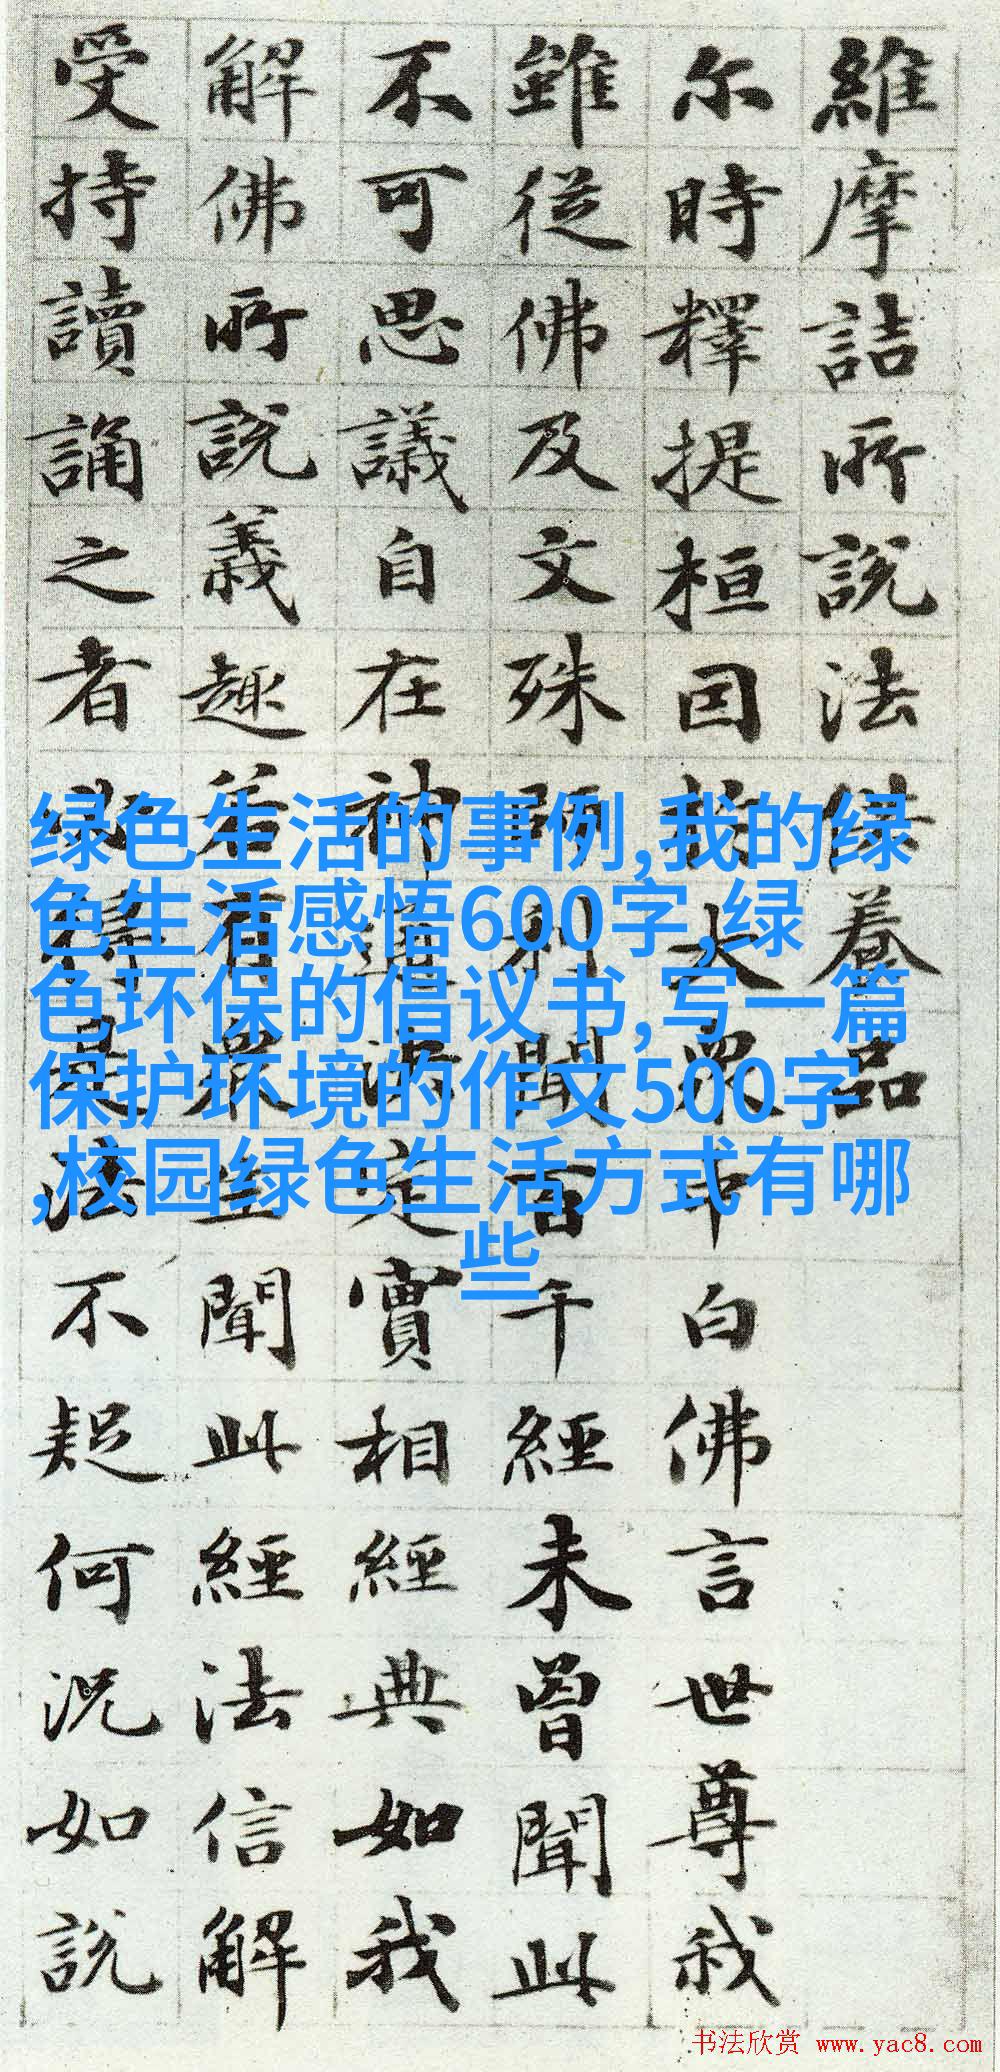 維摩詰所說法供養品
尔時釋提桓因於大眾中白佛言世尊我
雖從佛及文殊師利聞百千經未曾聞此
不可思議自在神通决定實相經典如我
解佛所說義趣若有眾生聞此經法信解
受持讀誦之者必得是法不疑何況如說
绿色生活的事例,我的绿
色生活感悟600字,绿
色环保的倡议书,写一篇
保护环境的作文500字
,校园绿色生活方式有哪
些
书法欣赏 www.yac8.com